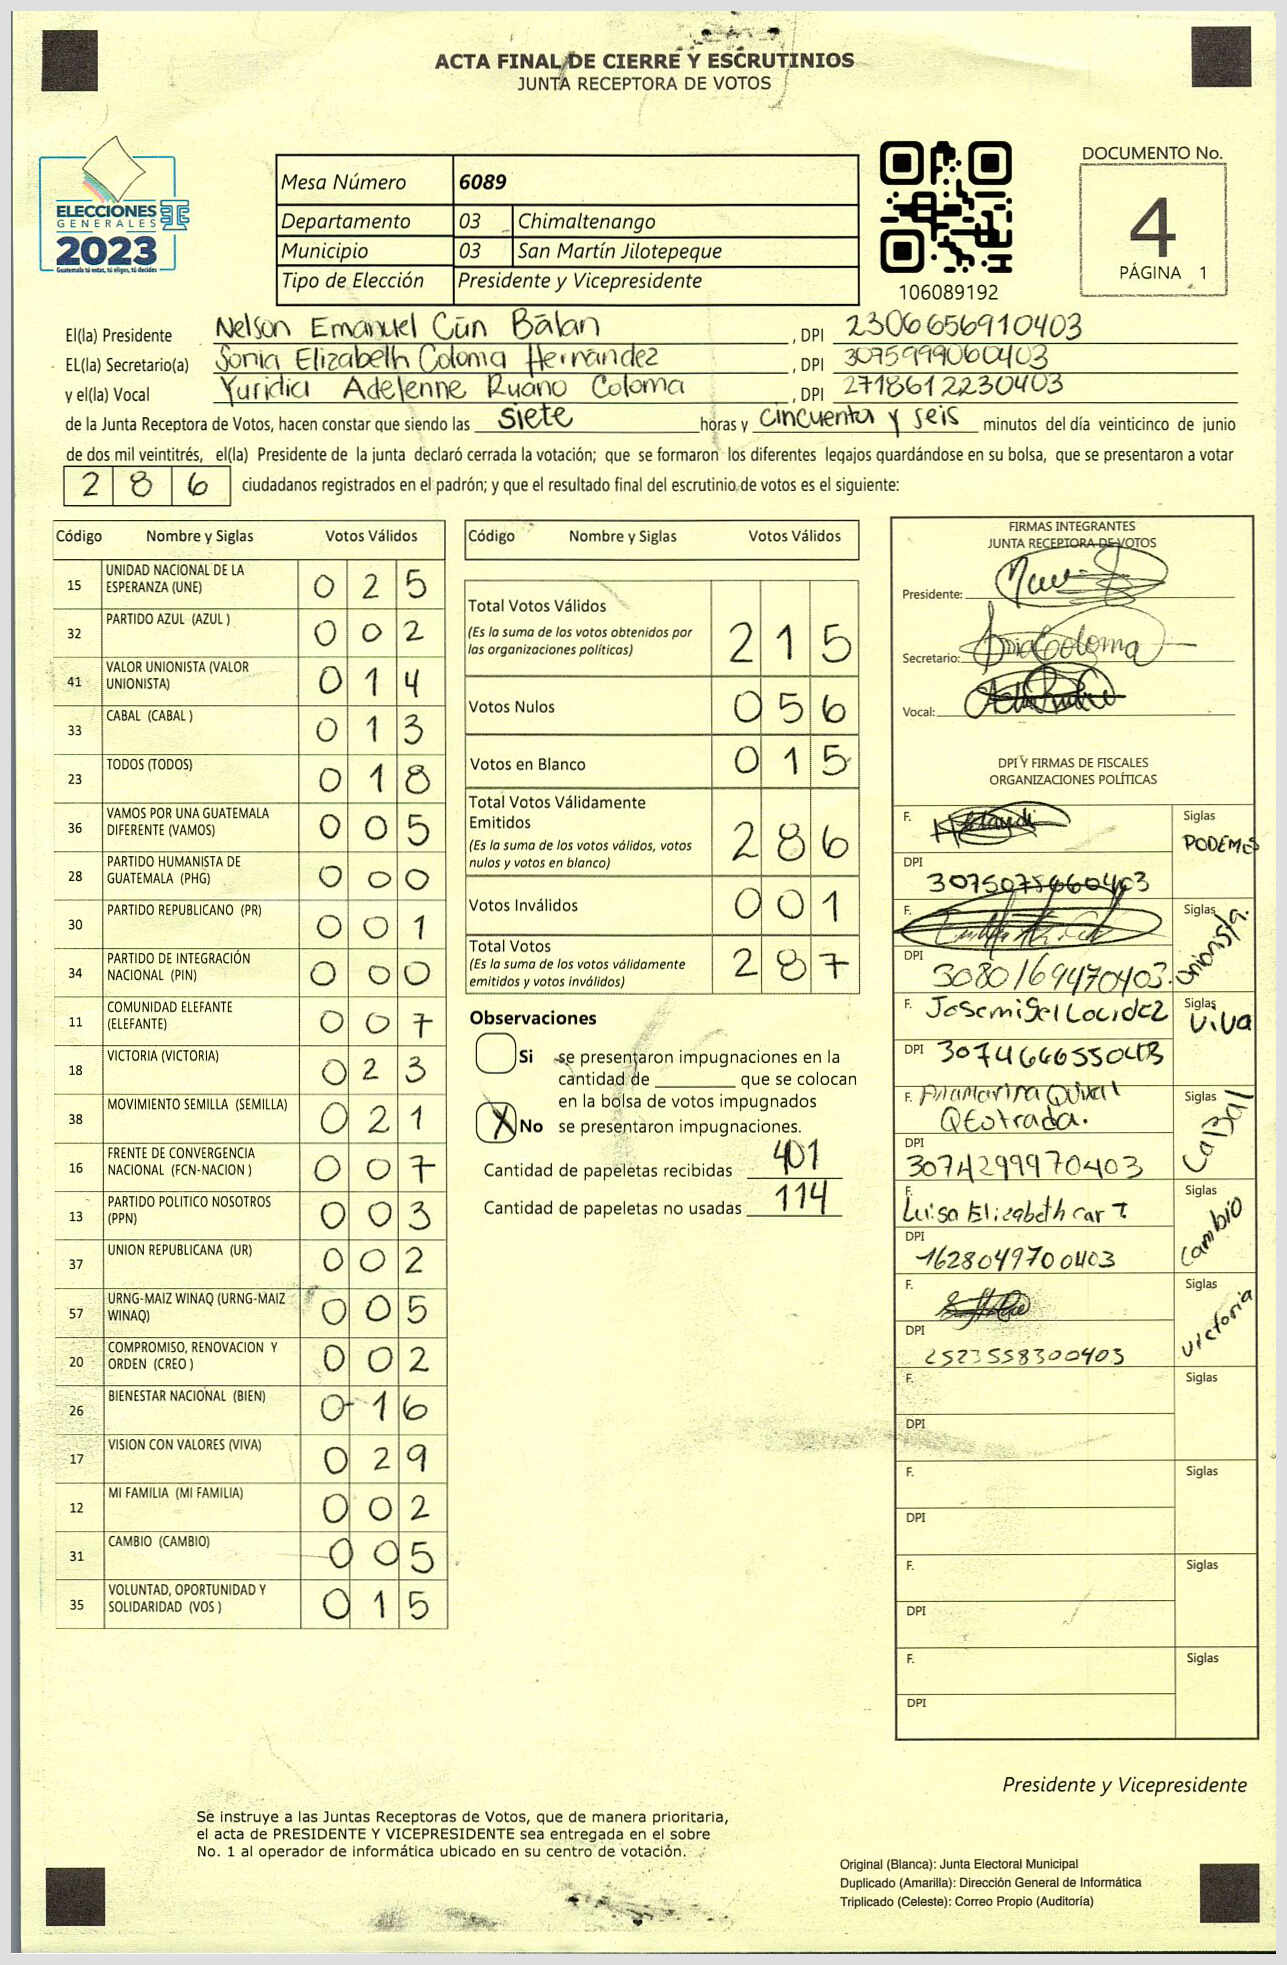 ACTA FINAL DE CIERRE Y ESCRUTINIOS
JUNTA RECEPTORA DE VOTOS
ELECCIONES
GENERALES
2023
Guatemala tú votas, tú eliges, tú decides
Mesa Número 6089
Departamento 03 Chimaltenango
Municipio 03 San Martín Jilotepeque
Tipo de Elección Presidente y Vicepresidente
106089192
DOCUMENTO No.
4
PÁGINA 1
El(la) Presidente Nelson Emanuel Cún Bálan , DPI 2306656910403
EL(la) Secretario(a) Sonia Elizabeth Coloma Hernández , DPI 3075999060403
y el(la) Vocal Yuridia Adelenne Ruano Coloma , DPI 2718612230403
de la Junta Receptora de Votos, hacen constar que siendo las siete horas y cincuenta y seis minutos del día veinticinco de junio
de dos mil veintitrés, el(la) Presidente de la junta declaró cerrada la votación; que se formaron los diferentes legajos guardándose en su bolsa, que se presentaron a votar
2 8 6 ciudadanos registrados en el padrón; y que el resultado final del escrutinio de votos es el siguiente:
Código Nombre y Siglas Votos Válidos
15 UNIDAD NACIONAL DE LA
ESPERANZA (UNE) 0 2 5
32 PARTIDO AZUL (AZUL ) 0 0 2
41 VALOR UNIONISTA (VALOR
UNIONISTA) 0 1 4
33 CABAL (CABAL ) 0 1 3
23 TODOS (TODOS) 0 1 8
36 VAMOS POR UNA GUATEMALA
DIFERENTE (VAMOS) 0 0 5
28 PARTIDO HUMANISTA DE
GUATEMALA (PHG) 0 0 0
30 PARTIDO REPUBLICANO (PR) 0 0 1
34 PARTIDO DE INTEGRACIÓN
NACIONAL (PIN) 0 0 0
11 COMUNIDAD ELEFANTE
(ELEFANTE) 0 0 7
18 VICTORIA (VICTORIA) 0 2 3
38 MOVIMIENTO SEMILLA (SEMILLA) 0 2 1
16 FRENTE DE CONVERGENCIA
NACIONAL (FCN-NACION ) 0 0 7
13 PARTIDO POLITICO NOSOTROS
(PPN) 0 0 3
37 UNION REPUBLICANA (UR) 0 0 2
57 URNG-MAIZ WINAQ (URNG-MAIZ
WINAQ) 0 0 5
20 COMPROMISO, RENOVACION Y
ORDEN (CREO ) 0 0 2
26 BIENESTAR NACIONAL (BIEN) 0 1 6
17 VISION CON VALORES (VIVA) 0 2 9
12 MI FAMILIA (MI FAMILIA) 0 0 2
31 CAMBIO (CAMBIO) 0 0 5
35 VOLUNTAD, OPORTUNIDAD Y
SOLIDARIDAD (VOS ) 0 1 5
Código Nombre y Siglas Votos Válidos
Total Votos Válidos
(Es la suma de los votos obtenidos por
las organizaciones políticas) 2 1 5
Votos Nulos 0 5 6
Votos en Blanco 0 1 5
Total Votos Válidamente
Emitidos
(Es la suma de los votos válidos, votos
nulos y votos en blanco) 2 8 6
Votos Inválidos 0 0 1
Total Votos
(Es la suma de los votos válidamente
emitidos y votos inválidos) 2 8 7
Observaciones
Si se presentaron impugnaciones en la
cantidad de ________ que se colocan
en la bolsa de votos impugnados
X No se presentaron impugnaciones.
Cantidad de papeletas recibidas 401
Cantidad de papeletas no usadas 114
FIRMAS INTEGRANTES
JUNTA RECEPTORA DE VOTOS
Presidente:
Secretario:
Vocal:
DPI Y FIRMAS DE FISCALES
ORGANIZACIONES POLÍTICAS
F. Siglas
PODEMOS
DPI
3075075660403
F. Siglas
Unionista.
DPI
3080169470403.
F. Siglas
VIVA
DPI 3074666550413
F. Siglas
CaBal
DPI
3074299970403
F. Luisa Elizabeth Car T. Siglas
Cambio
DPI
1628049700403
F. Siglas
Victoria
DPI
2523558300403
F. Siglas
DPI
F. Siglas
DPI
F. Siglas
DPI
F. Siglas
DPI
Presidente y Vicepresidente
Se instruye a las Juntas Receptoras de Votos, que de manera prioritaria,
el acta de PRESIDENTE Y VICEPRESIDENTE sea entregada en el sobre
No. 1 al operador de informática ubicado en su centro de votación.
Original (Blanca): Junta Electoral Municipal
Duplicado (Amarilla): Dirección General de Informática
Triplicado (Celeste): Correo Propio (Auditoría)